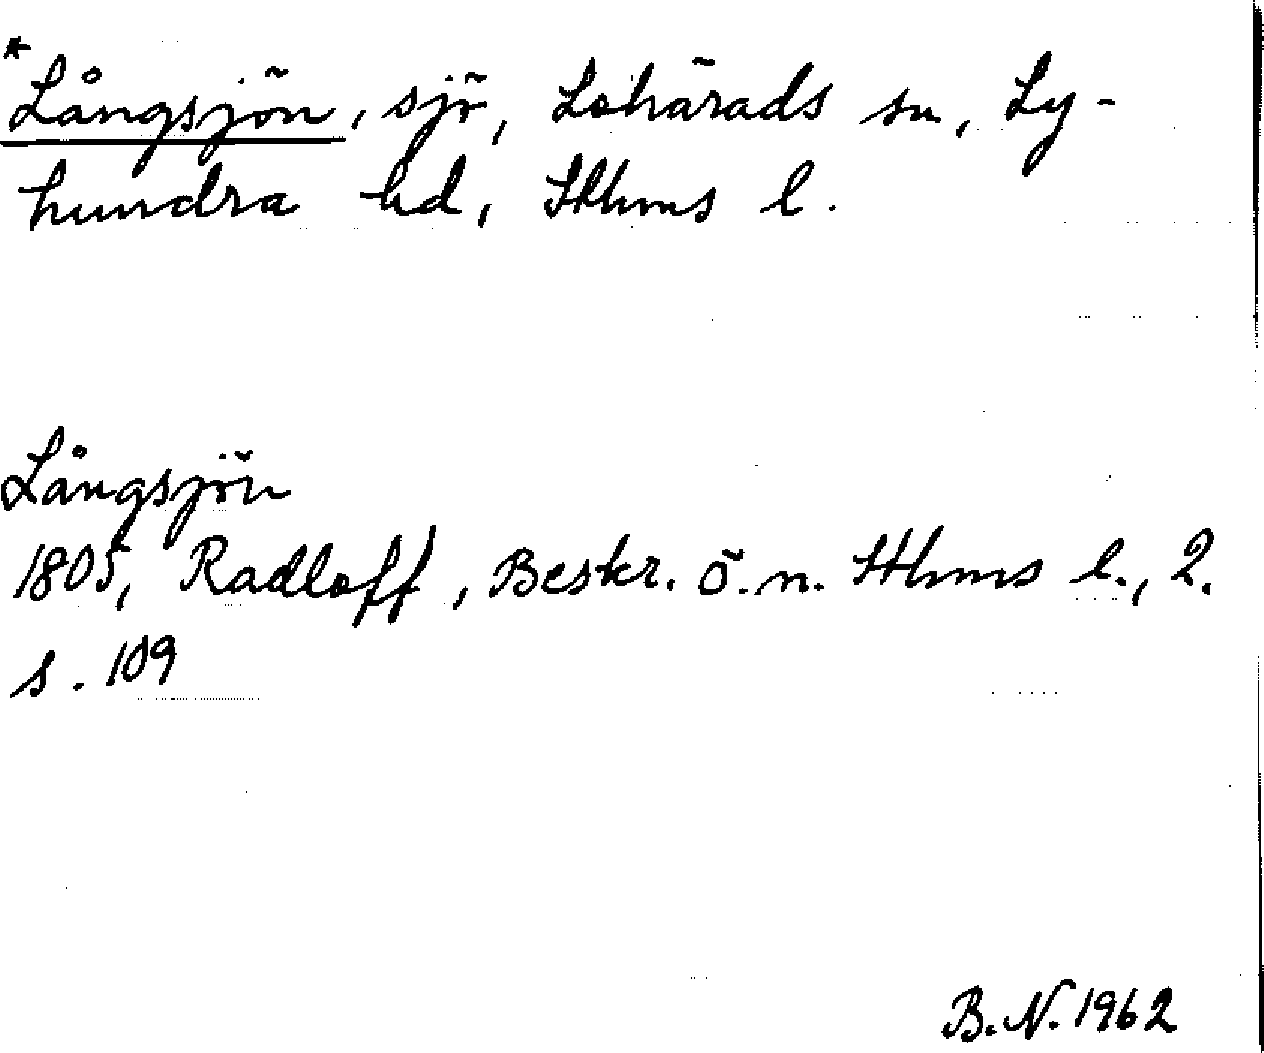 *Långsjön, sjö, Lohärads sn, Ly-
hundra hd, Sthms l.
Långsjön
1805, Radloff, Beskr. ö. n. Sthms l., 2.
s. 109
B.N. 1962